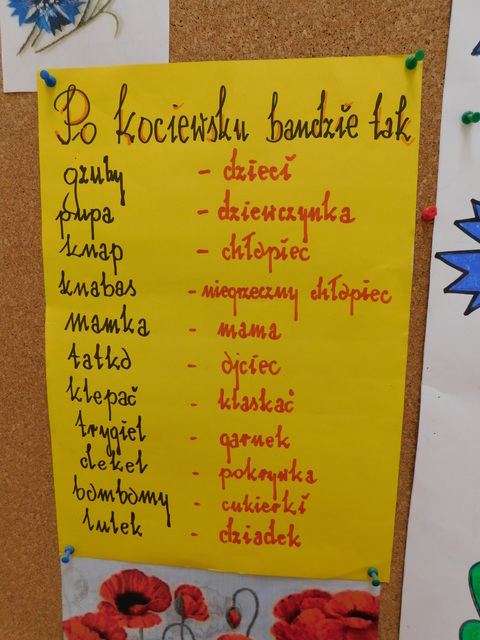 Po kociewsku bandzie tak
gzuby - dzieci
pupa - dziewczynka
knap - chłopiec
knabas - niegrzeczny chłopiec
mamka - mama
tatko - ojciec
klepać - klaskać
trygiel - garnek
dekel - pokrywka
bombomy - cukierki
lulek - dziadek